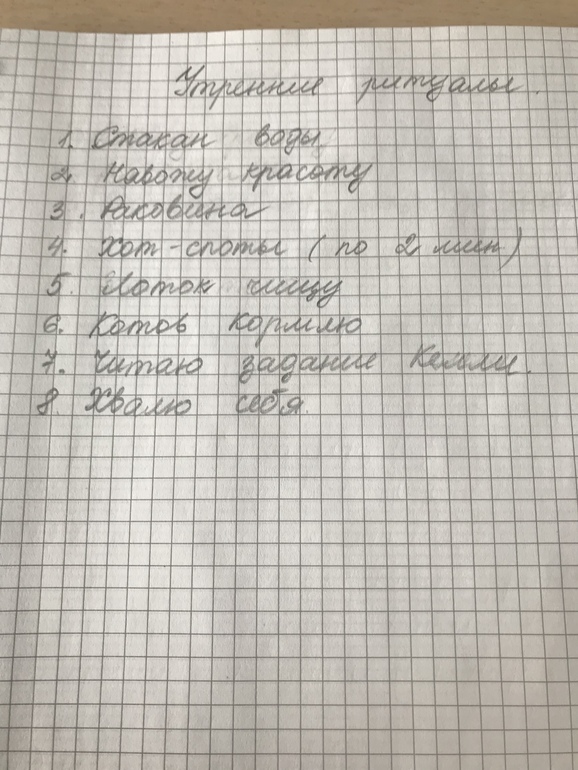 Утренние ритуалы.
1. Стакан воды
2. Навожу красоту
3. Раковина
4. Хот-споты (по 2 мин)
5. Лоток чищу
6. Котов кормлю
7. Читаю задание Келли.
8. Хвалю себя.